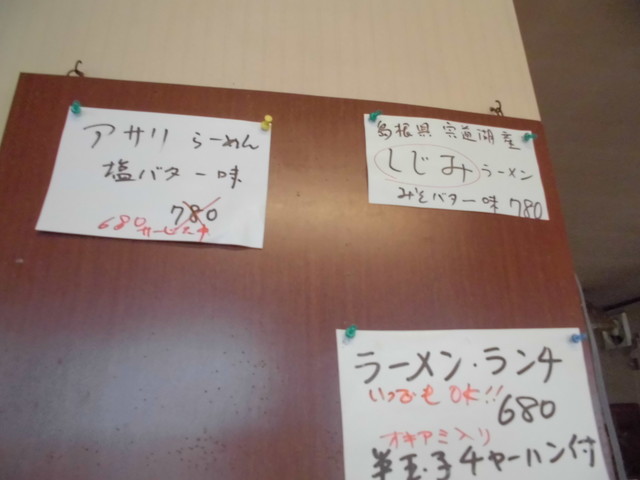 アサリ らーめん
塩バター味
780
680 サービス中
島根県 宍道湖産
しじみラーメン
みそバター味 780
ラーメン・ランチ
いつでもOK!!
680
オキアミ入り
半玉子チャーハン付